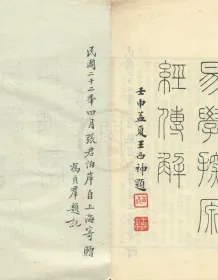 易學探原
經傳解
壬申孟夏王西神題
民國二十二年四月張君伯岸自上海寄贈
馮貞羣題記